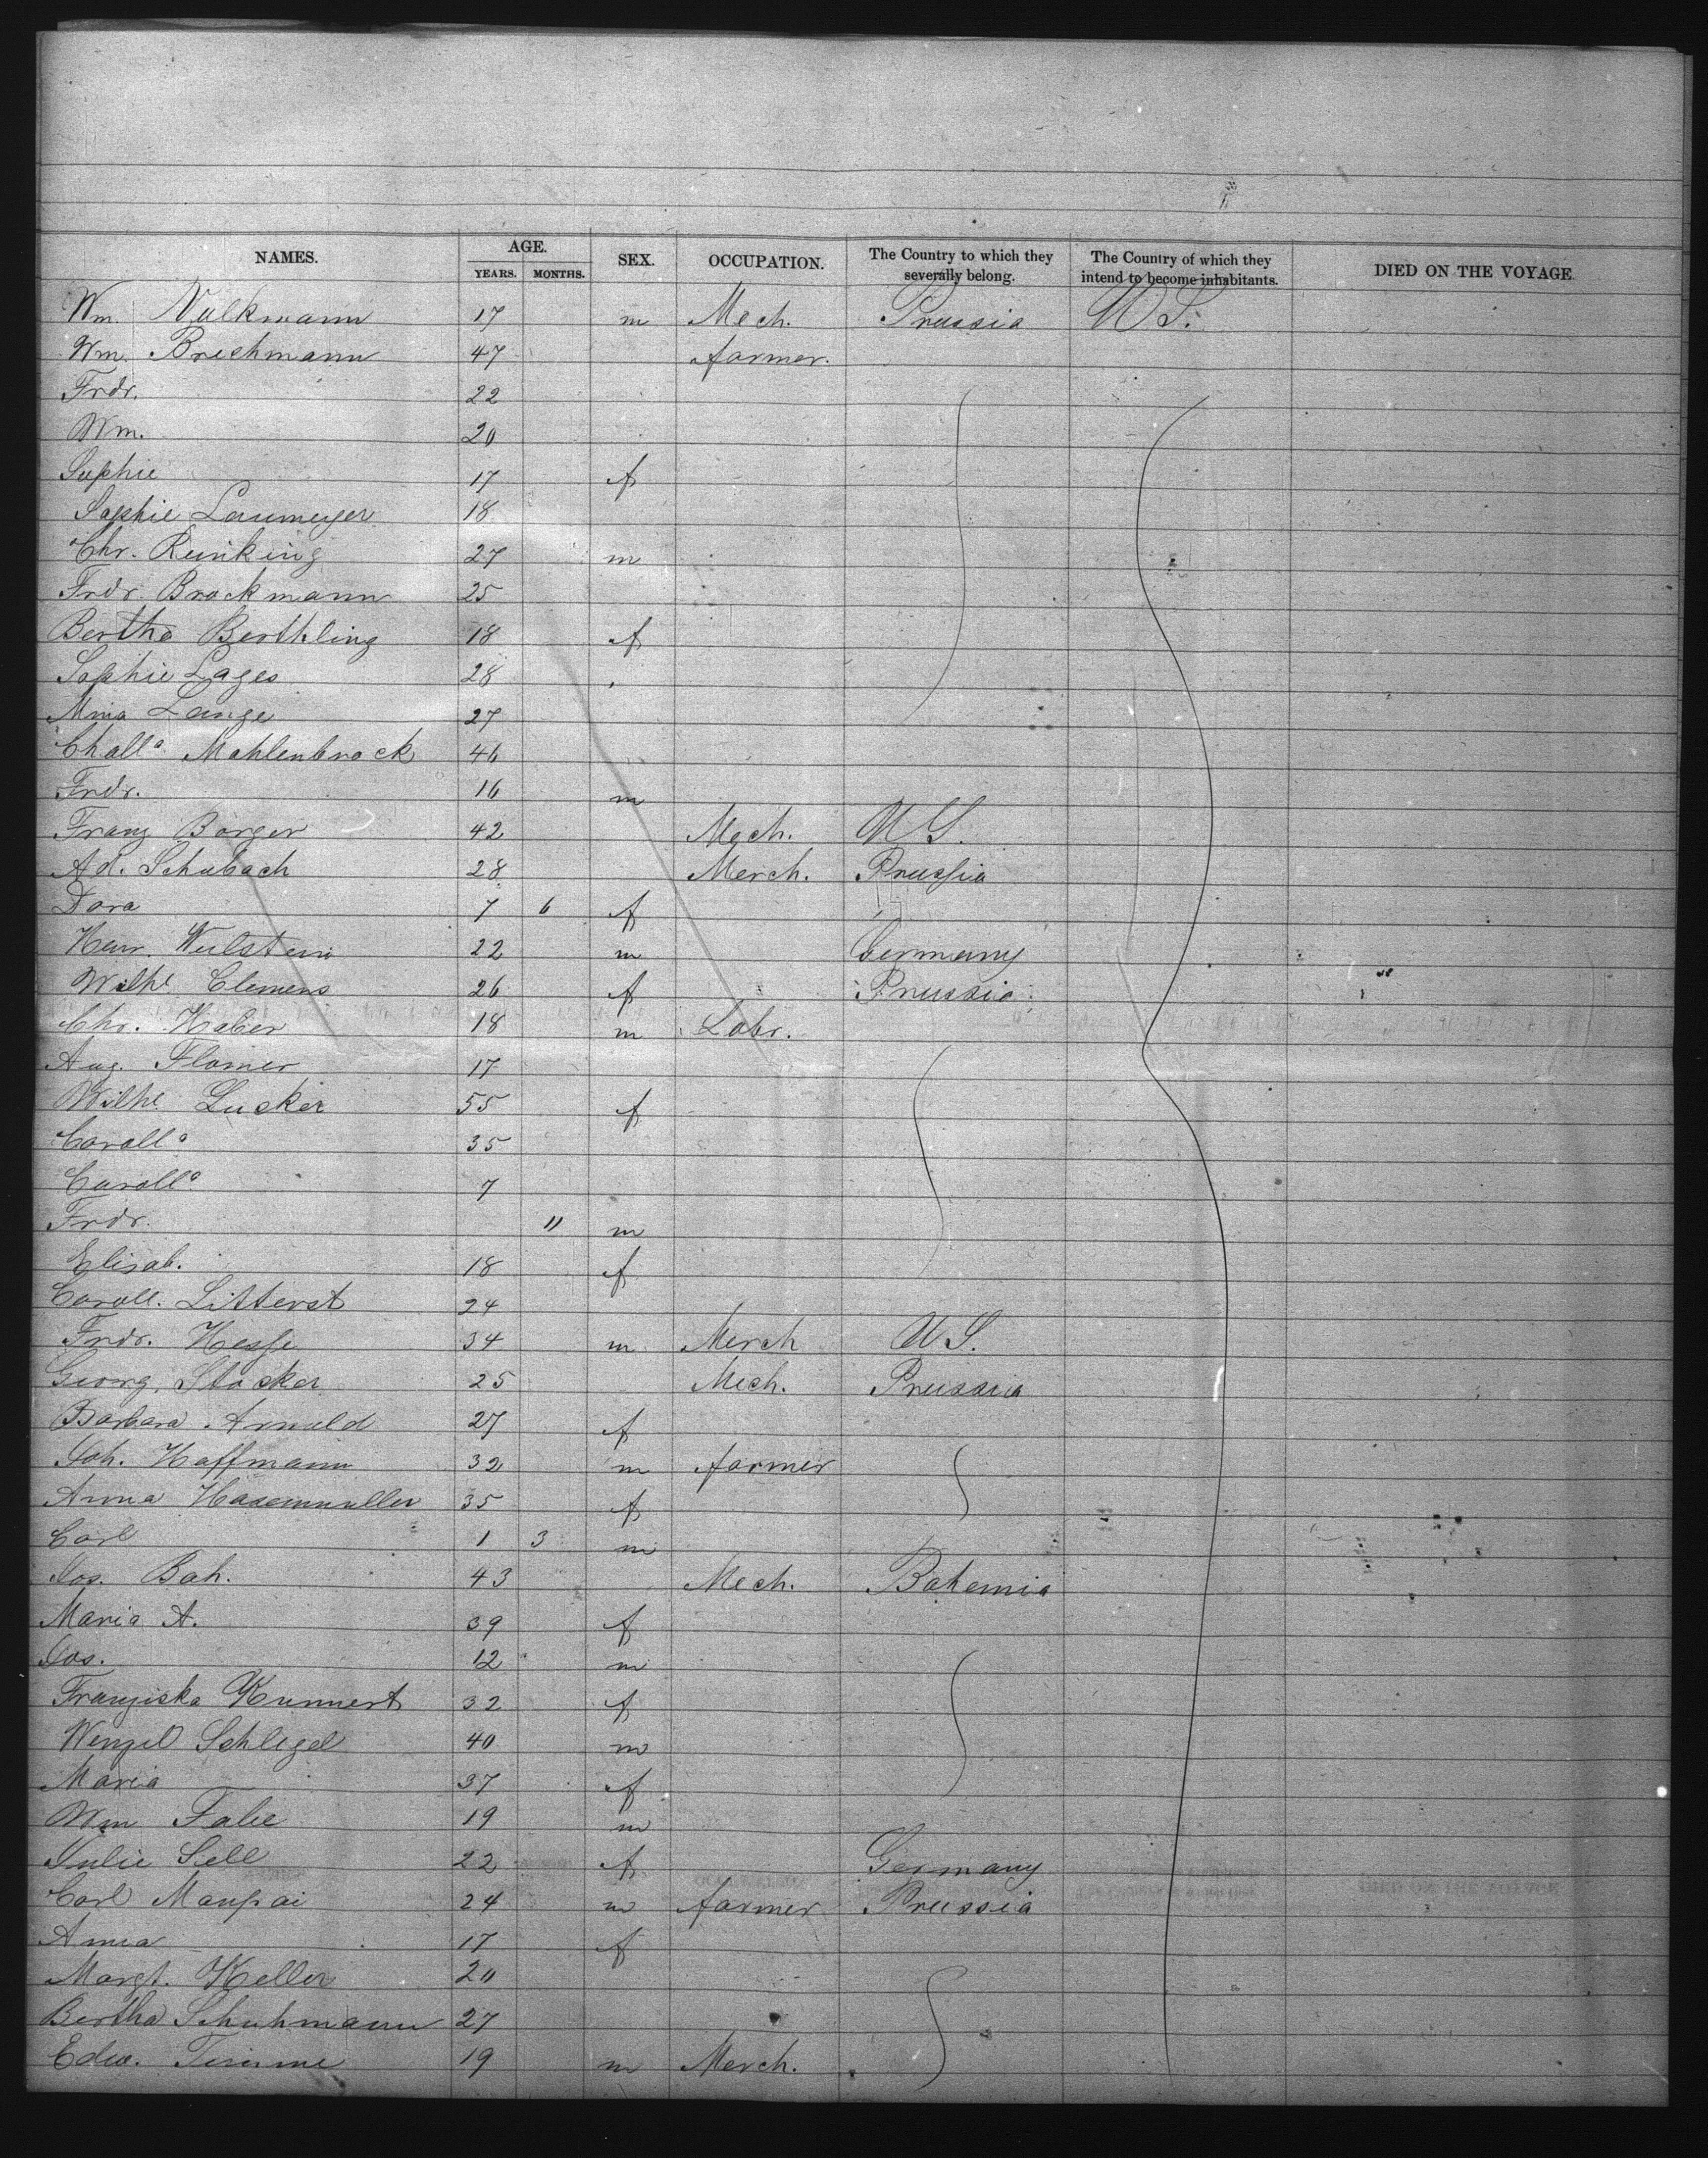 NAMES. AGE. SEX. OCCUPATION. The Country to which they severally belong. The Country of which they intend to become inhabitants. DIED ON THE VOYAGE.
YEARS. MONTHS.
Wm. Volkmann 17 m Mech. Prussia U S.
Wm. Brechmann 47 farmer.
Frdr. 22
Wm. 20
Sophie 17 f
Sophie Laumeyer 18
Chr. Runking 27 m
Frdr. Brockmann 25
Bertha Berthling 18 f
Sophie Lages 28
Mina Lange 27
Challa Mahlenbrock 46
Frdr. 16 m
Franz Borger 42 Mech. U S.
Ad. Schubach 28 Merch. Prussia
Dora 7 6 f
Henr. Wulstein 22 m Germany
Wilhe Clemens 26 f Prussia
Chr. Haber 18 m Labr.
Aug. Flomer 17
Wilhe Lucker 55 f
Carolla 35
Carolla 7
Frdr. 11 m
Elisab. 18 f
Caroll. Litterst 24
Frdr. Hesse 34 m Merch U S.
Georg. Stocker 25 Mech. Prussia
Barbara Arnold 27 f
Joh. Hoffmann 32 m farmer
Anna Hasenmuller 35 f
Carl 1 3 m
Jos. Bah. 43 Mech. Bohemia
Maria A. 39 f
Jos. 12 m
Franziska Kunnert 32 f
Wenzel Schlegel 40 m
Maria 37 f
Wm Falie 19 m
Julie Sell 22 f Germany
Carl Maupai 24 m farmer Prussia
Anna 17 f
Margt. Keller 20
Bertha Schuhmann 27
Edw. Timme 19 m Merch.